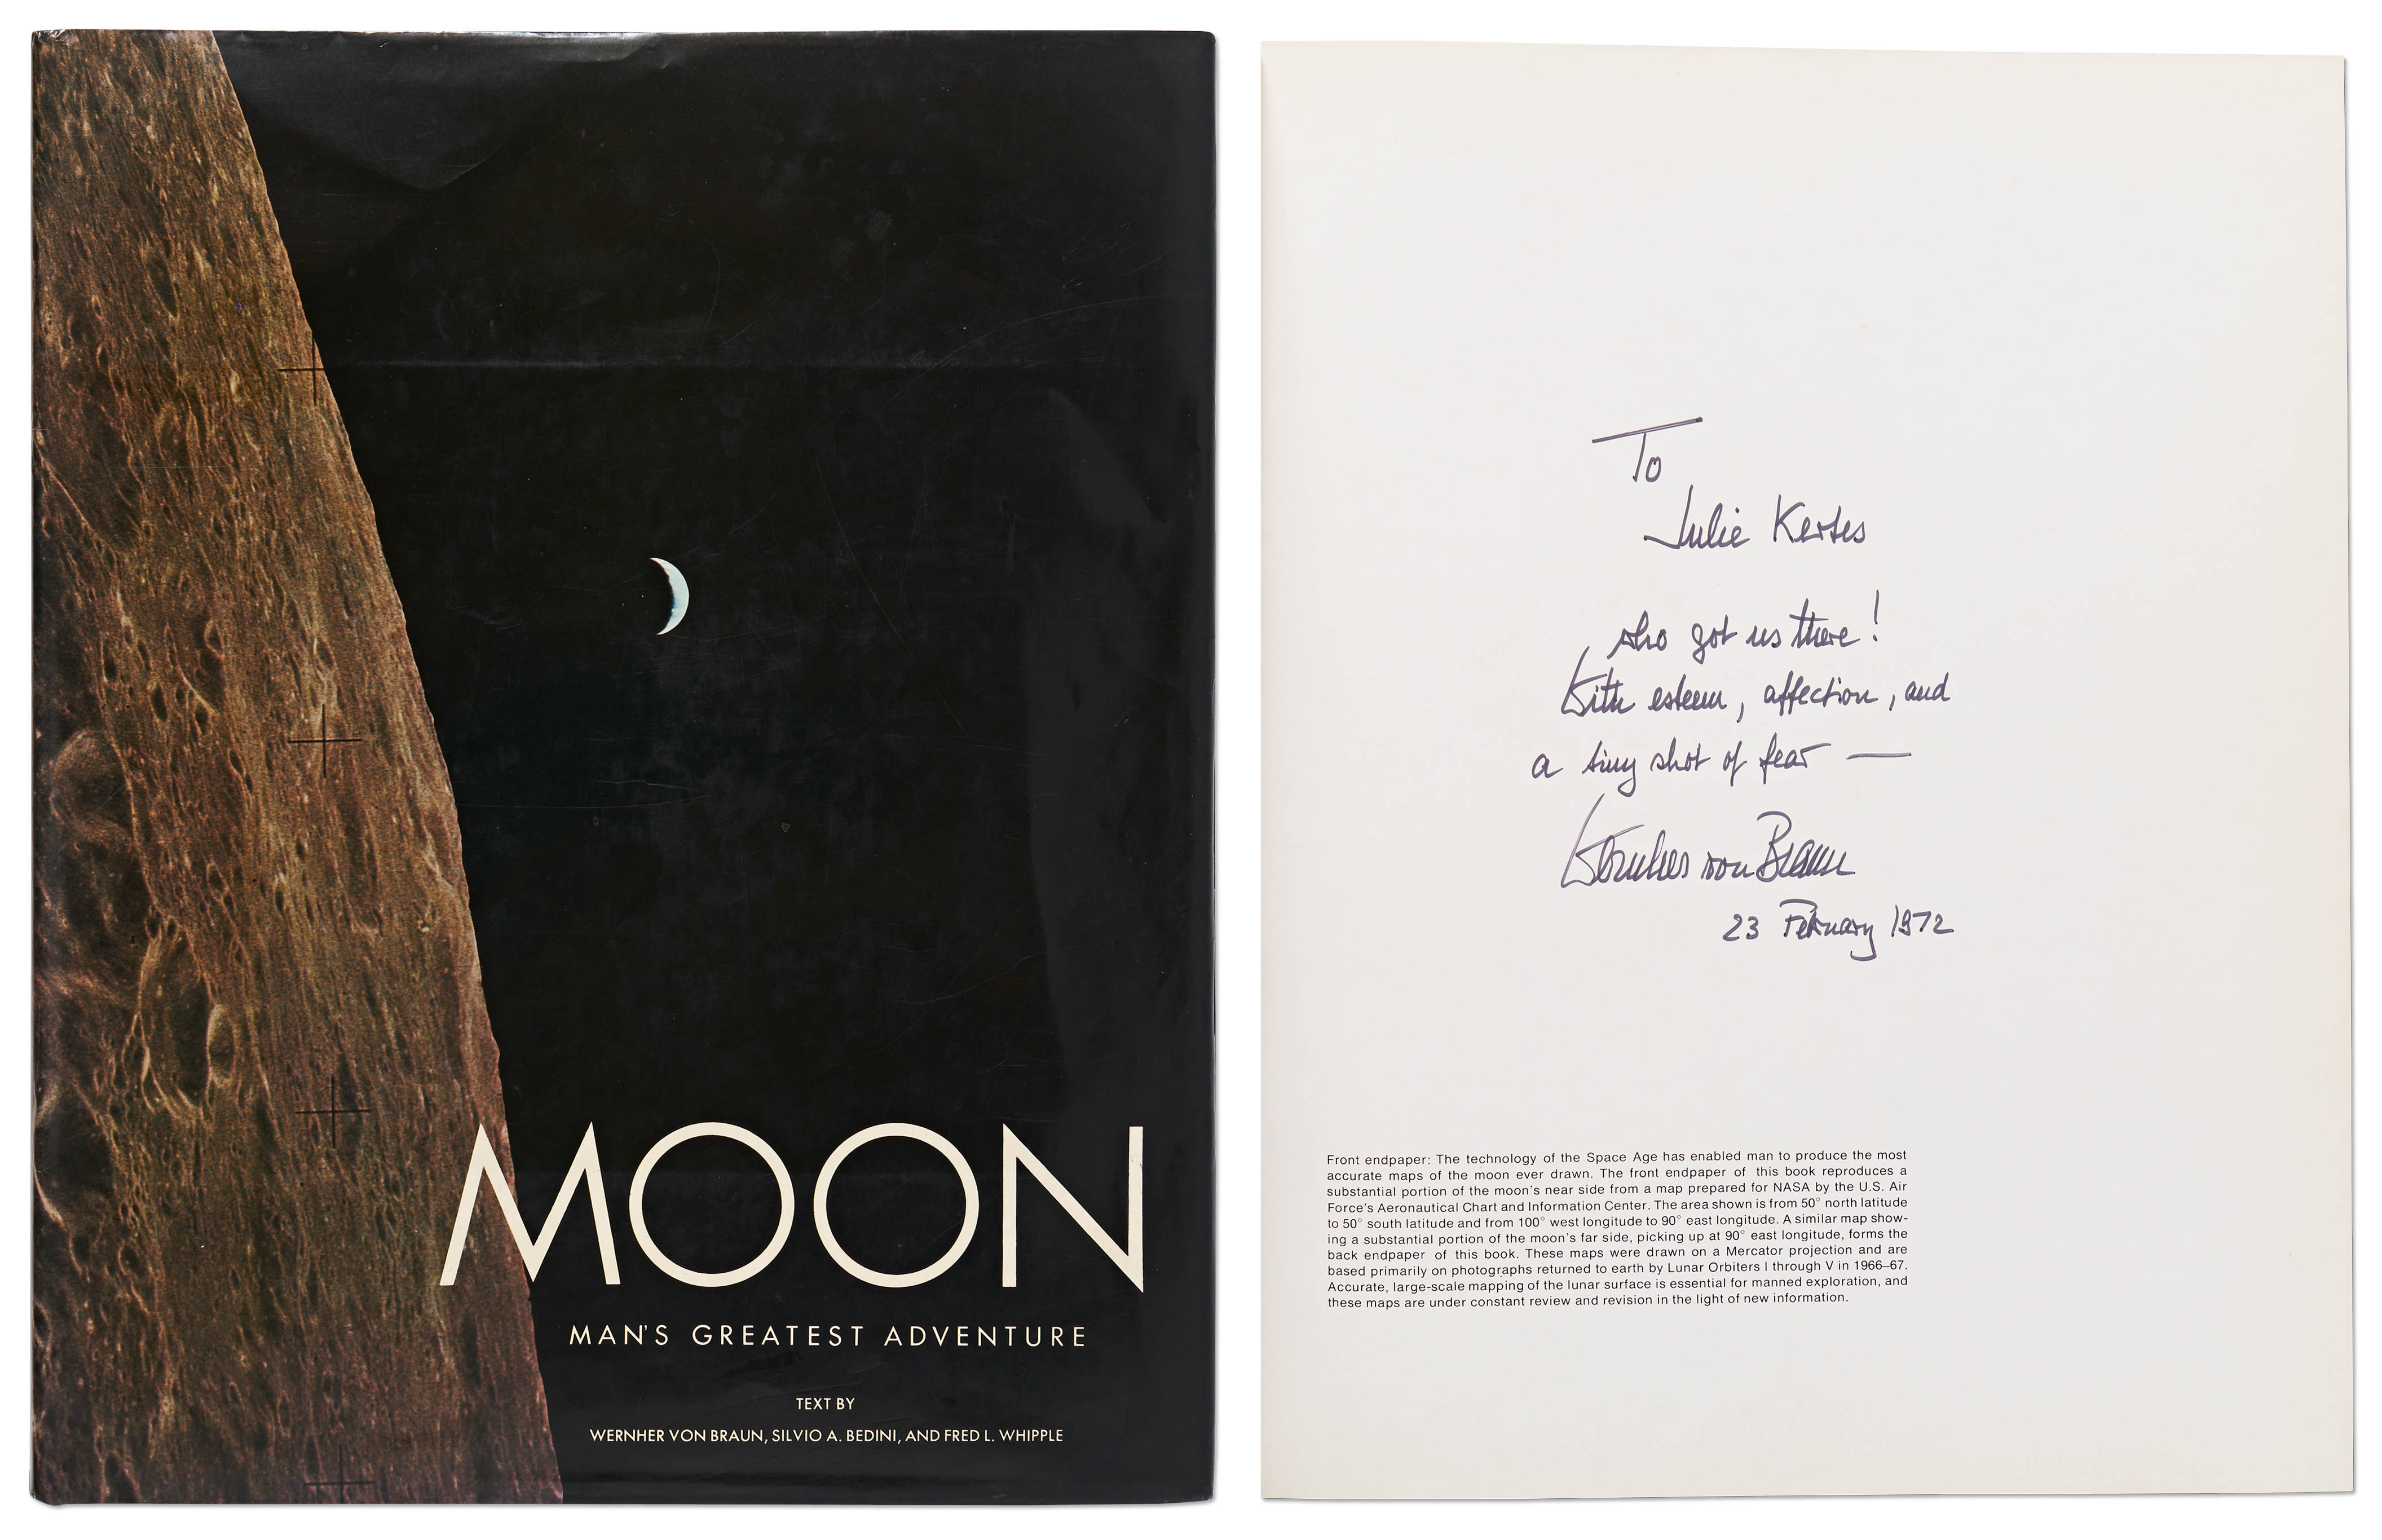 MOON
MAN'S GREATEST ADVENTURE
TEXT BY
WERNHER VON BRAUN, SILVIO A. BEDINI, AND FRED L. WHIPPLE
To
Julie Kertes
who got us there!
With esteem, affection, and
a tiny shot of fear —
Wernher von Braun
23 February 1972
Front endpaper: The technology of the Space Age has enabled man to produce the most
accurate maps of the moon ever drawn. The front endpaper of this book reproduces a
substantial portion of the moon's near side from a map prepared for NASA by the U.S. Air
Force's Aeronautical Chart and Information Center. The area shown is from 50° north latitude
to 50° south latitude and from 100° west longitude to 90° east longitude. A similar map show-
ing a substantial portion of the moon's far side, picking up at 90° east longitude, forms the
back endpaper of this book. These maps were drawn on a Mercator projection and are
based primarily on photographs returned to earth by Lunar Orbiters I through V in 1966–67.
Accurate, large-scale mapping of the lunar surface is essential for manned exploration, and
these maps are under constant review and revision in the light of new information.